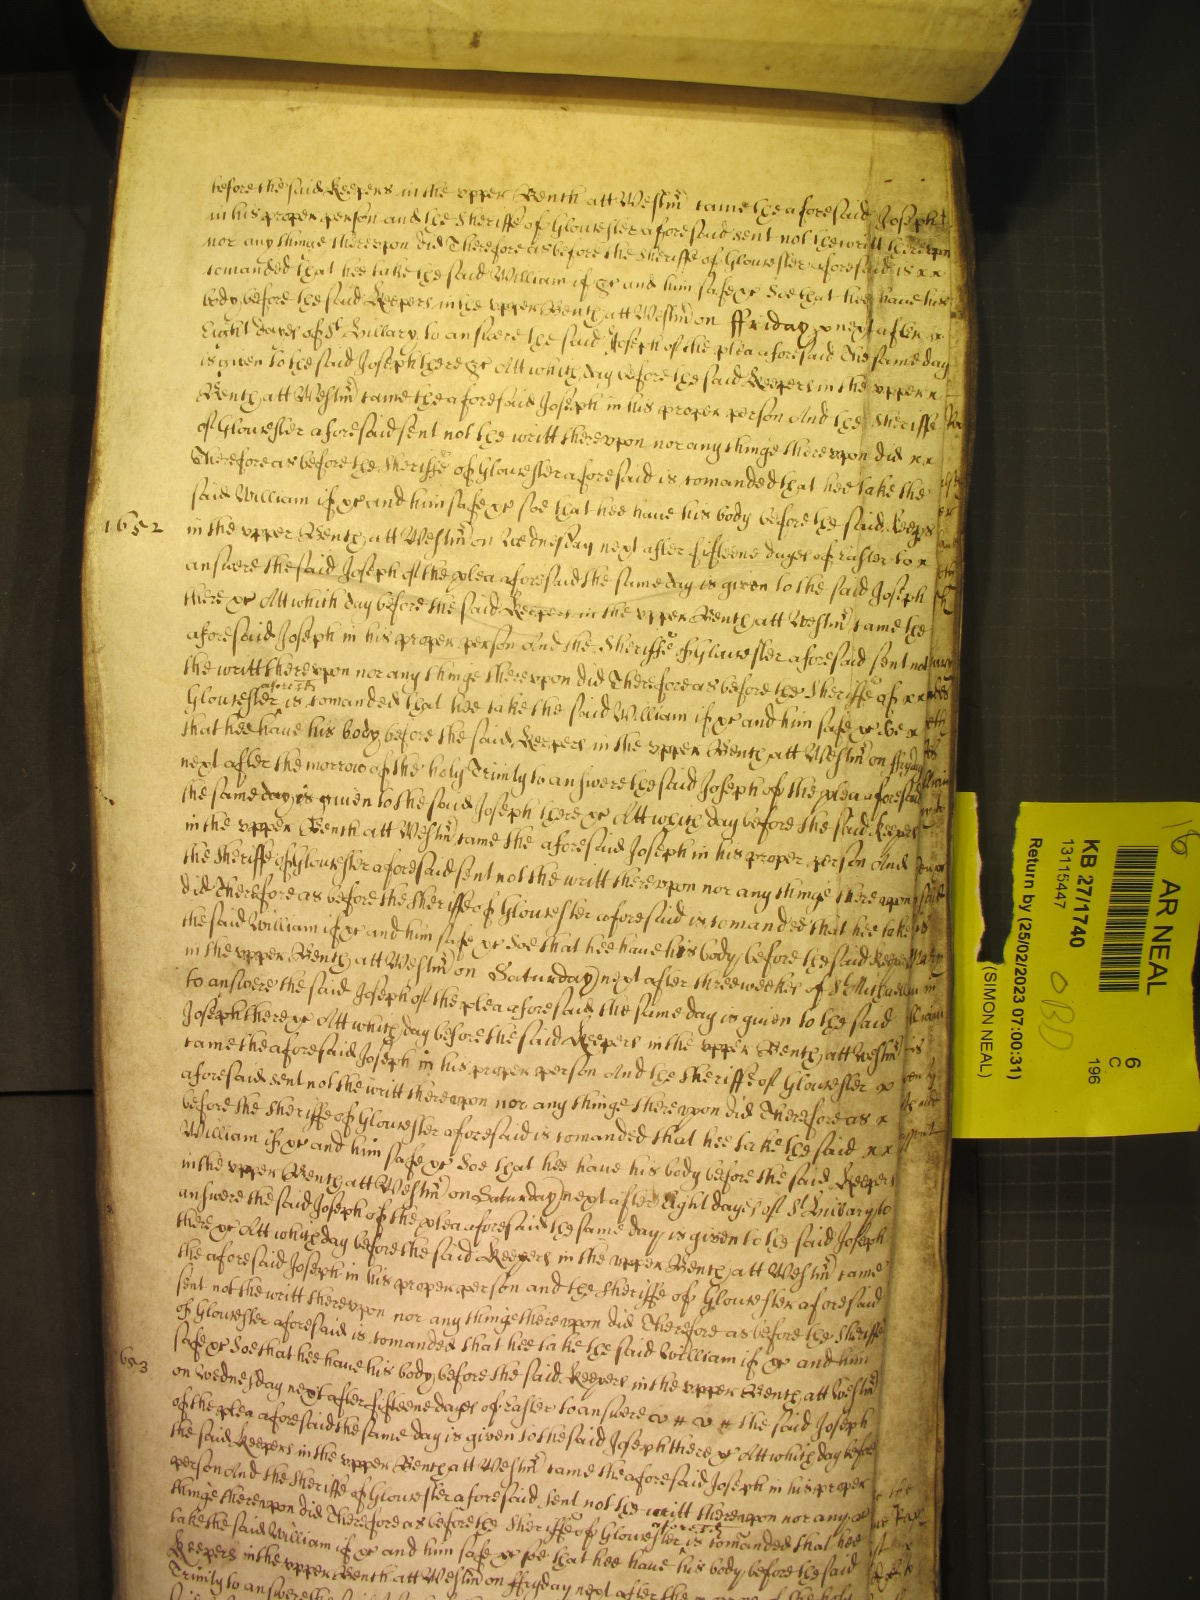 before the said Keepers in the vpper Bench att Westmr came the aforesaid Joseph
in his proper person and the Sheriffe of Gloucester aforesaid sent not the writt therevpon
nor any thinge therevpon did Therefore as before the Sheriffe of Gloucester aforesaid is x x
comanded that hee take the said William if &c and him safe &c Soe that hee haue his
body before the said Keepers in the vpper Bench att Westmr on ffriday next after
Eight dayes of St Hillary to answere the said Joseph of the plea aforesaid The same day
is given to the said Joseph there &c Att which day before the said Keepers in the vpper x
Bench att Westmr came the aforesaid Joseph in his proper person And the Sheriffe
of Gloucester aforesaid sent not the writt therevpon nor any thinge therevpon did x x
Therefore as before the Sheriffe of Gloucester aforesaid is comanded that hee take the
said William if &c and him safe &c soe that hee haue his body before the said Keeps
1652 in the vpper Bench att Westmr on Wednesday next after fifteene dayes of Easter to x
answere the said Joseph of the plea aforesaid the same day is given to the said Joseph
there &c Att which day before the said Keepers in the vpper Bench att Westmr came the
aforesaid Joseph in his proper person And the Sheriffe of Gloucester aforesaid sent not
the writt therevpon nor any thinge therevpon did Therefore as before the Sheriffe of x x
Gloucester aforesd is comanded that hee take the said William if &c and him safe &c Soe x
that hee haue his body before the said Keepers in the vpper Bench att Westmr on ffryday
next after the morrow of the holy Trinity to answere the said Joseph of the plea aforesaid
the same day is given to the said Joseph there &c Att which day before the said Keepers
in the vpper Bench att Westmr came the aforesaid Joseph in his proper person And
the Sheriffe of Gloucester aforesaid sent not the writt therevpon nor any thinge therevpon
did Therefore as before the Sheriffe of Gloucester aforesaid is comanded that hee take
the said William if &c and him safe &c Soe that hee haue his body before the said Keepers
in the vpper Bench att Westmr on Saturday next after three weekes of St Michaell
to answere the said Joseph of the plea aforesaid the same day is given to the said
Joseph there &c Att which day before the said Keepers in the vpper Bench att Westmr
came the aforesaid Joseph in his proper person And the Sheriffe of Gloucester x
aforesaid sent not the writt therevpon nor any thinge therevpon did Therefore as x
before the Sheriffe of Gloucester aforesaid is comanded that hee take the said x x
William if &c and him safe &c Soe that hee haue his body before the said Keepers
in the vpper Bench att Westmr on Saturday next after Eight dayes of St Hillary to
answere the said Joseph of the plea aforesaid the same day is given to the said Joseph
there &c Att which day before the said Keepers in the vpper Bench att Westmr came
the aforesaid Joseph in his proper person and the Sheriffe of Gloucester aforesaid
sent not the writt therevpon nor any thinge therevpon did Therefore as before the Sheriffe
of Gloucester aforesaid is comanded that hee take the said William if &c and him
653 safe &c Soe that hee haue his body before the said Keepers in the vpper Bench att Westmr
on Wednesday next after fifteene dayes of Easter to answere the said Joseph
of the plea aforesaid the same day is given to the said Joseph there &c Att which day before
the said Keepers in the vpper Bench att Westmr came the aforesaid Joseph in his proper
person And the Sheriffe of Gloucester aforesaid sent not the writt therevpon nor any
thinge therevpon did Therefore as before the Sheriffe of Gloucester aforesd is comanded that hee
take the said William if &c and him safe &c soe that hee haue his body before the said
Keepers in the vpper Bench att Westmr on ffryday next after the morrow of the holy
Trinity to answere the
AR NEAL
KB 27/1740
13115447
Return by (25/02/2023 07:00:31)
(SIMON NEAL)
6
C
196
16